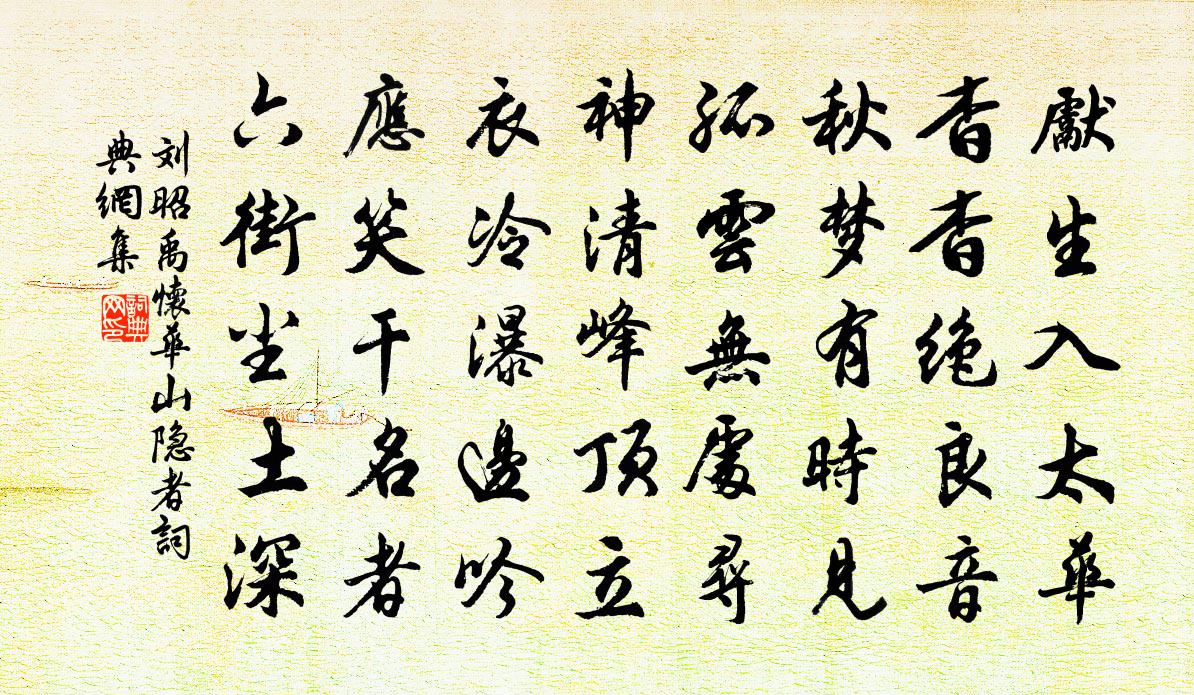 獻生入太華
杳杳絶良音
秋梦有時見
孤雲無處尋
神清峰頂立
衣冷瀑邊吟
應笑干名者
六街尘土深
刘昭禹懷華山隐者詞
典網集
詞典网印